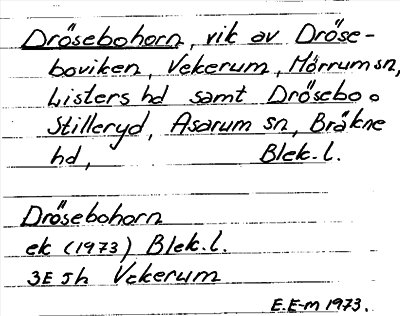 Drösebohorn, vik av Dröse-
boviken, Vekerum, Mörrum sn,
Listers hd samt Drösebo o
Stilleryd, Asarum sn, Bräkne
hd, Blek. l.
Drösebohorn
ek (1973) Blek. l.
3E Jh Vekerum
E.E-m 1973.